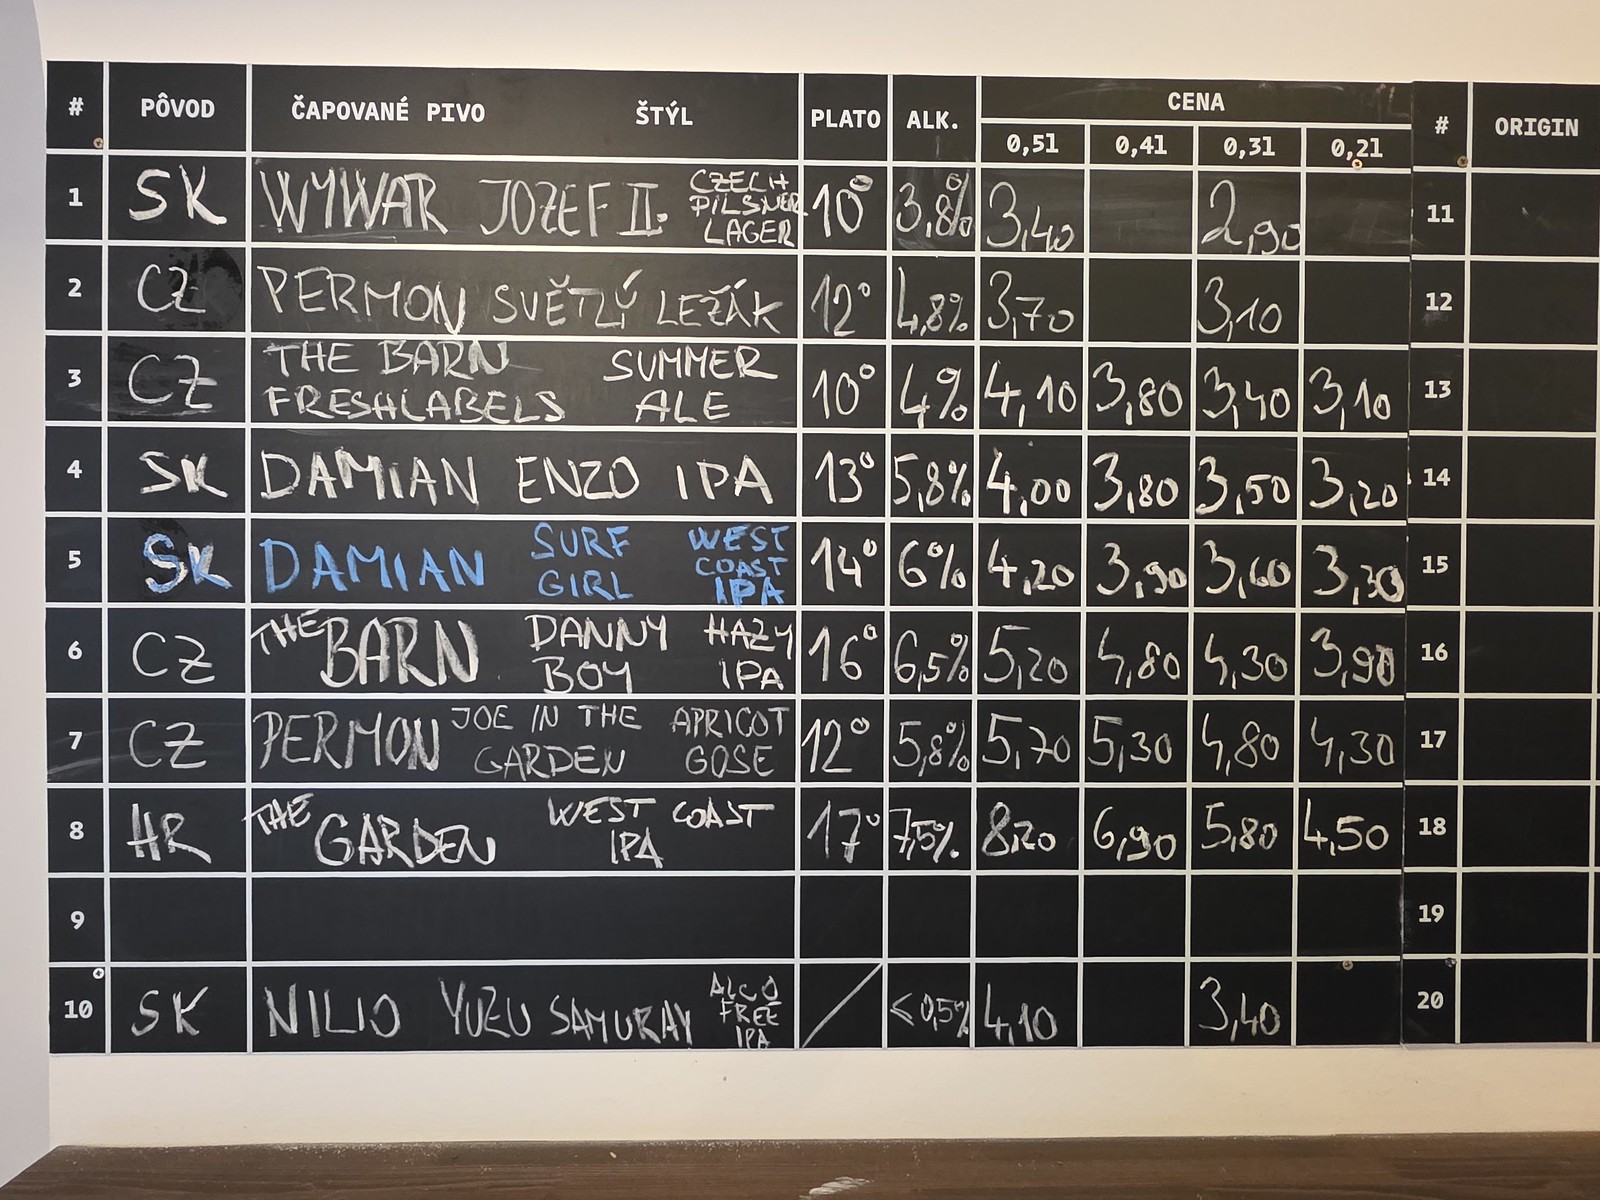 # PÔVOD ČAPOVANÉ PIVO ŠTÝL PLATO ALK. CENA # ORIGIN
0,5l 0,4l 0,3l 0,2l
1 SK WYWAR JOZEF II. CZECH PILSNER LAGER 10° 3,8% 3,40 2,90 11
2 CZ PERMON SVĚTLÝ LEŽÁK 12° 4,8% 3,70 3,10 12
3 CZ THE BARN FRESHLABELS SUMMER ALE 10° 4% 4,10 3,80 3,40 3,10 13
4 SK DAMIAN ENZO IPA 13° 5,8% 4,00 3,80 3,50 3,20 14
5 SK DAMIAN SURF GIRL WEST COAST IPA 14° 6% 4,20 3,90 3,60 3,30 15
6 CZ THE BARN DANNY BOY HAZY IPA 16° 6,5% 5,20 4,80 4,30 3,90 16
7 CZ PERMON JOE IN THE GARDEN APRICOT GOSE 12° 5,8% 5,70 5,30 4,80 4,30 17
8 HR THE GARDEN WEST COAST IPA 17° 7,5% 8,20 6,90 5,80 4,50 18
9 19
10 SK NILIO YUZU SAMURAY ALCO FREE IPA / <0,5% 4,10 3,40 20